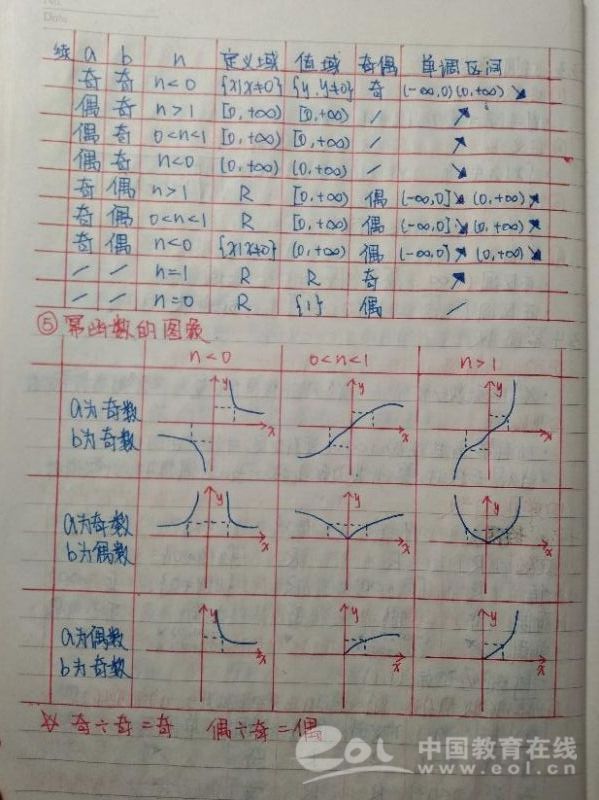 No.
Date
续 a b n 定义域 值域 奇偶 单调区间
奇 奇 n<0 {x|x≠0} {y, y≠0} 奇 (-∞,0)(0,+∞) ↘
偶 奇 n>1 [0,+∞) [0,+∞) / ↗
偶 奇 0<n<1 [0,+∞) [0,+∞) / ↗
偶 奇 n<0 (0,+∞) (0,+∞) / ↘
奇 偶 n>1 R [0,+∞) 偶 (-∞,0]↘ (0,+∞)↗
奇 偶 0<n<1 R [0,+∞) 偶 (-∞,0]↘ (0,+∞)↗
奇 偶 n<0 {x|x≠0} (0,+∞) 偶 (-∞,0)↗ (0,+∞)↘
/ / n=1 R R 奇 ↗
/ / n=0 R {1} 偶 /
⑤幂函数的图象
n<0 0<n<1 n>1
a为奇数
b为奇数
y x y x y x
a为奇数
b为偶数
y x y x y x
a为偶数
b为奇数
y x y x y x
☆ 奇÷奇=奇 偶÷奇=偶
eol 中国教育在线
www.eol.cn